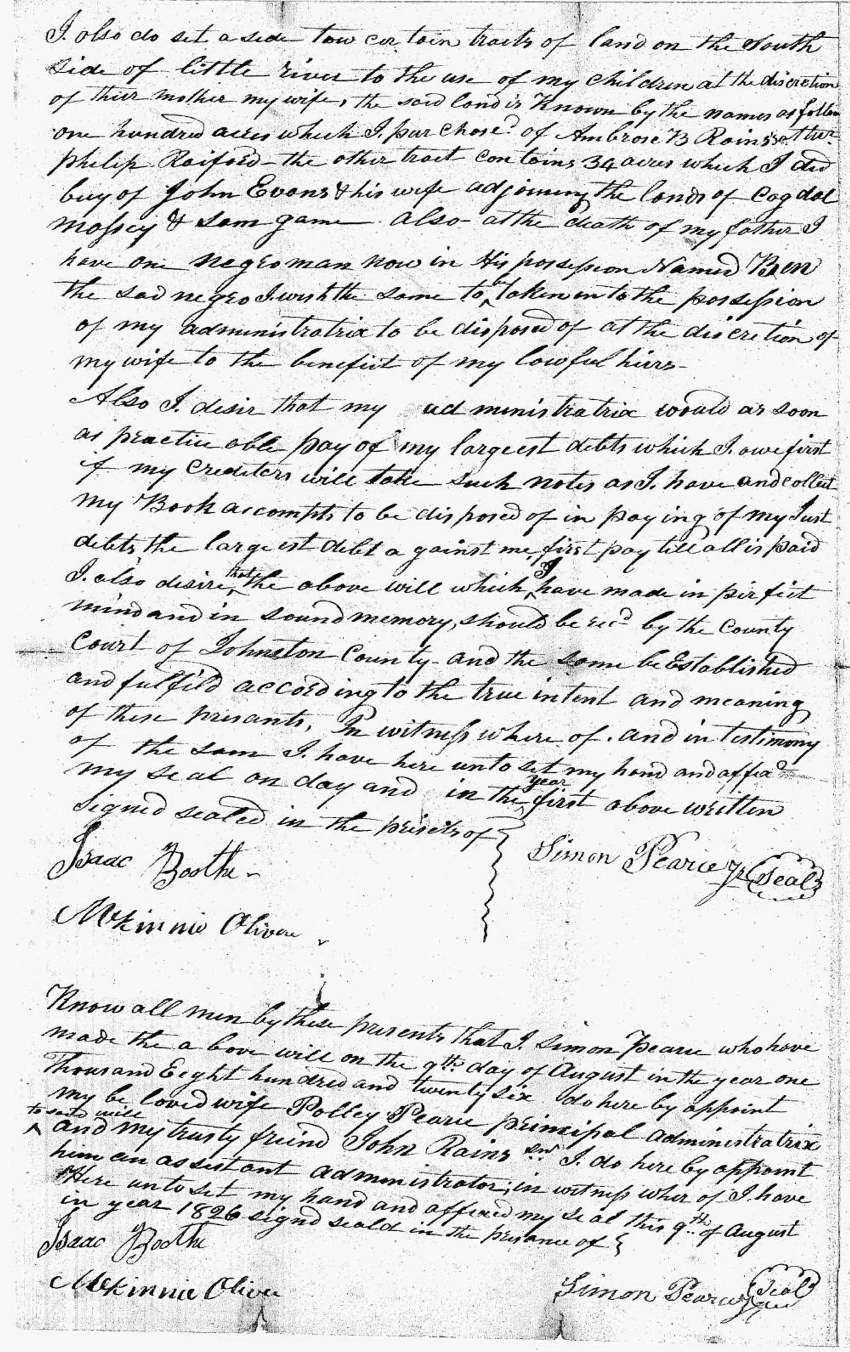 I also do set a side tow certain tracts of land on the South
side of little river to the use of my children at the discretion
of thier mother my wife, the said land is Known by the names as follow
one hundred acres which I parchosed of Ambrose B Rains
philip Raiford - the other tract contains 34 acres which I did
buy of John Evans & his wife adjoining the lands of Cogdal
Massey & Sam game also at the death of my father I
have one negro man now in His possession Named Ben
the sad negro I wish the same to taken into the possession
of my administratrix to be disposed of at the discretion of
my wife to the benefict of my lawful hiers-
Also I desir that my administratrix would as soon
as practice able pay of my largeest debts which I owe first
if my Crediters will take such notes as I have and collect
my Book accompts to be disposed of in paying of my Just
debts, the largeest debt a gainst me, first pay till all is paid
I also desire that the above will which I have made in pirfict
mind and in sound memory, should be recd by the County
Court of Johnston County and the same be Established
and fulfild according to the true intent and meaning
of these presants, In witness where of. and in testimony
of the sam I have here unto set my hand and affixd
my seal on day and in the year first above written
signed sealed in the presets of
Simon Pearce Jr Seal
Isaac Boothe
Mckinnie Oliver
Know all men by these presents that I Simon Pearce who have
made the a bove will on the 9th day of August in the year one
Thousand Eeght hundred and twenty six do here by appoint
my be loved wife Polley Pearce principal administratrix
to said will
and my trusty friend John Rains snr I do here by appoint
him an assistant administrator; in witness wher of I have
Here unto set my hand and affixed my seal this 9th of August
in year 1826 signd seald in the presance of
Isaac Boothe
Mckinnie Oliver
Simon Pearce Jr Seal